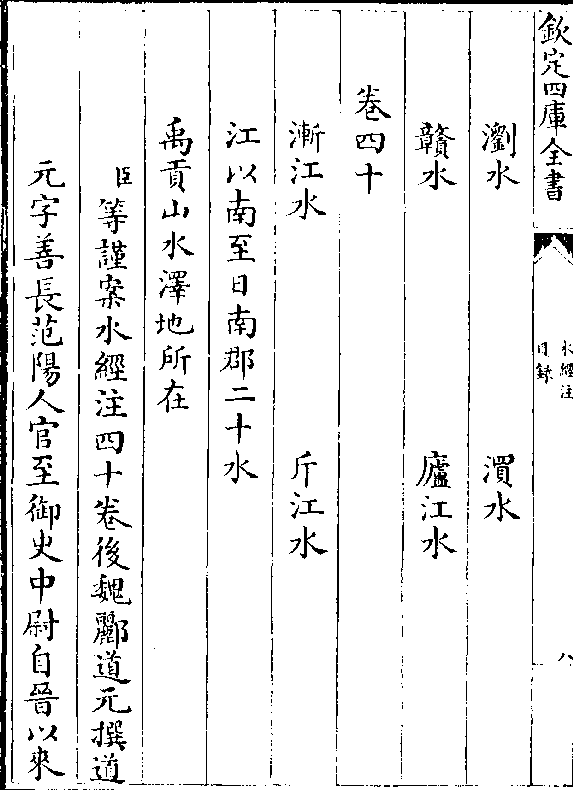 欽定四庫全書
水經注
目錄
八
瀏水 溳水
贛水 廬江水
卷四十
漸江水 斤江水
江以南至日南郡二十水
禹貢山水澤地所在
臣等謹案水經注四十卷後魏酈道元撰道
元字善長范陽人官至御史中尉自晉以來